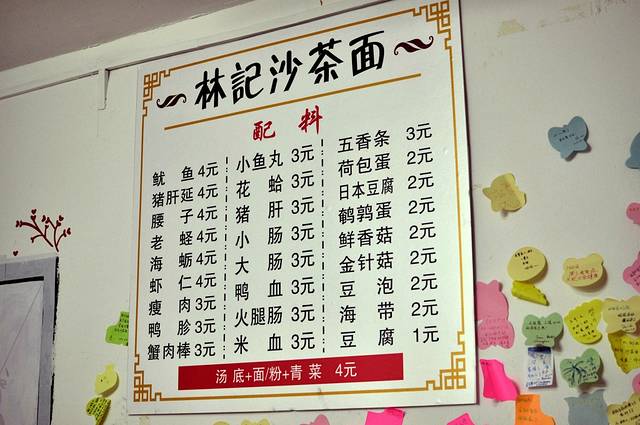 林記沙茶面
配料
鱿鱼 4元
猪肝延 4元
腰子 4元
老蛏 4元
海蛎 4元
虾仁 4元
瘦肉 3元
鸭胗 3元
蟹肉棒 3元
小鱼丸 3元
花蛤 3元
猪肝 3元
小肠 3元
大肠 3元
鸭血 3元
火腿肠 3元
米血 3元
五香条 3元
荷包蛋 2元
日本豆腐 2元
鹌鹑蛋 2元
鲜香菇 2元
金针菇 2元
豆泡 2元
海带 2元
豆腐 1元
汤底+面/粉+青菜 4元